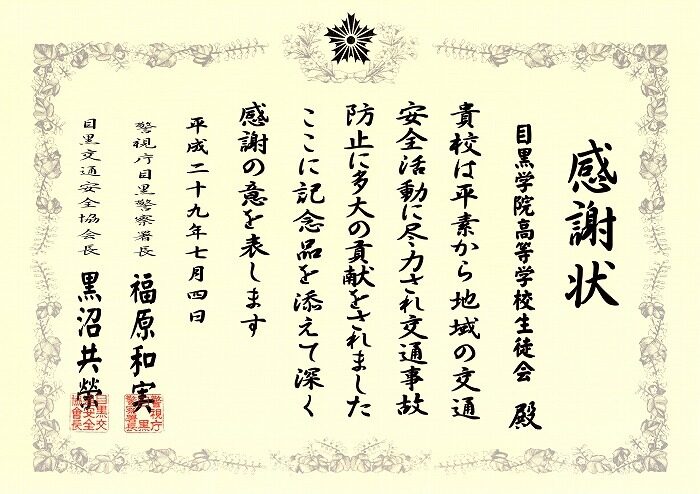 感謝状
目黒学院高等学校生徒会 殿
貴校は平素から地域の交通
安全活動に尽力され交通事故
防止に多大の貢献をされました
ここに記念品を添えて深く
感謝の意を表します
平成二十九年七月四日
警視庁目黒警察署長 福原和実
目黒交通安全協会長 黒沼共榮